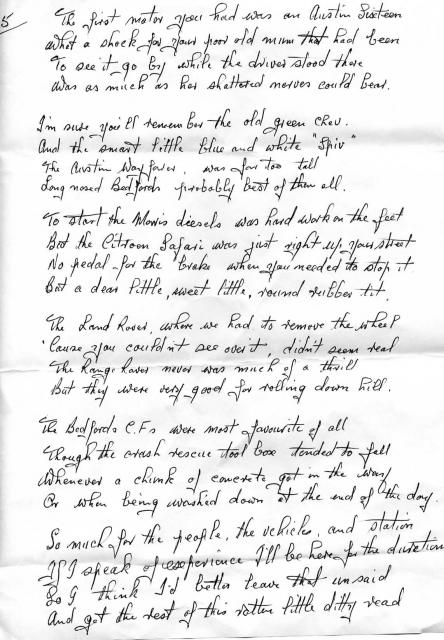 5
The first motor you had was an Austin Sixteen
What a shock for your poor old mum that had been
To see it go by while the driver stood there
Was as much as her shattered nerves could bear.
I'm sure you'll remember the old green Chev.
And the smart little blue and white "Spiv"
The Austin Wayfarer, was far too tall
Long nosed Bedfords probably best of them all.
To start the Morris diesels was hard work on the feet
But the Citroen Safari was just right up your street
No pedal for the brake when you needed to stop it
But a dear little, sweet little, round rubber tit.
The Land Rover, where we had to remove the wheel
'Cause you couldn't see over it, didn't seem real
The Range Rover never was much of a thrill
But they were very good for rolling down hill.
The Bedfords C.F.s were most favourite of all
Though the crash rescue tool box tended to fall
Whenever a chunk of concrete got in the way
Or when being washed down at the end of the day.
So much for the people, the vehicles, and station
If I speak of experience I'll be here for the duration
So I think I'd better leave that unsaid
And get the rest of this rotten little ditty read